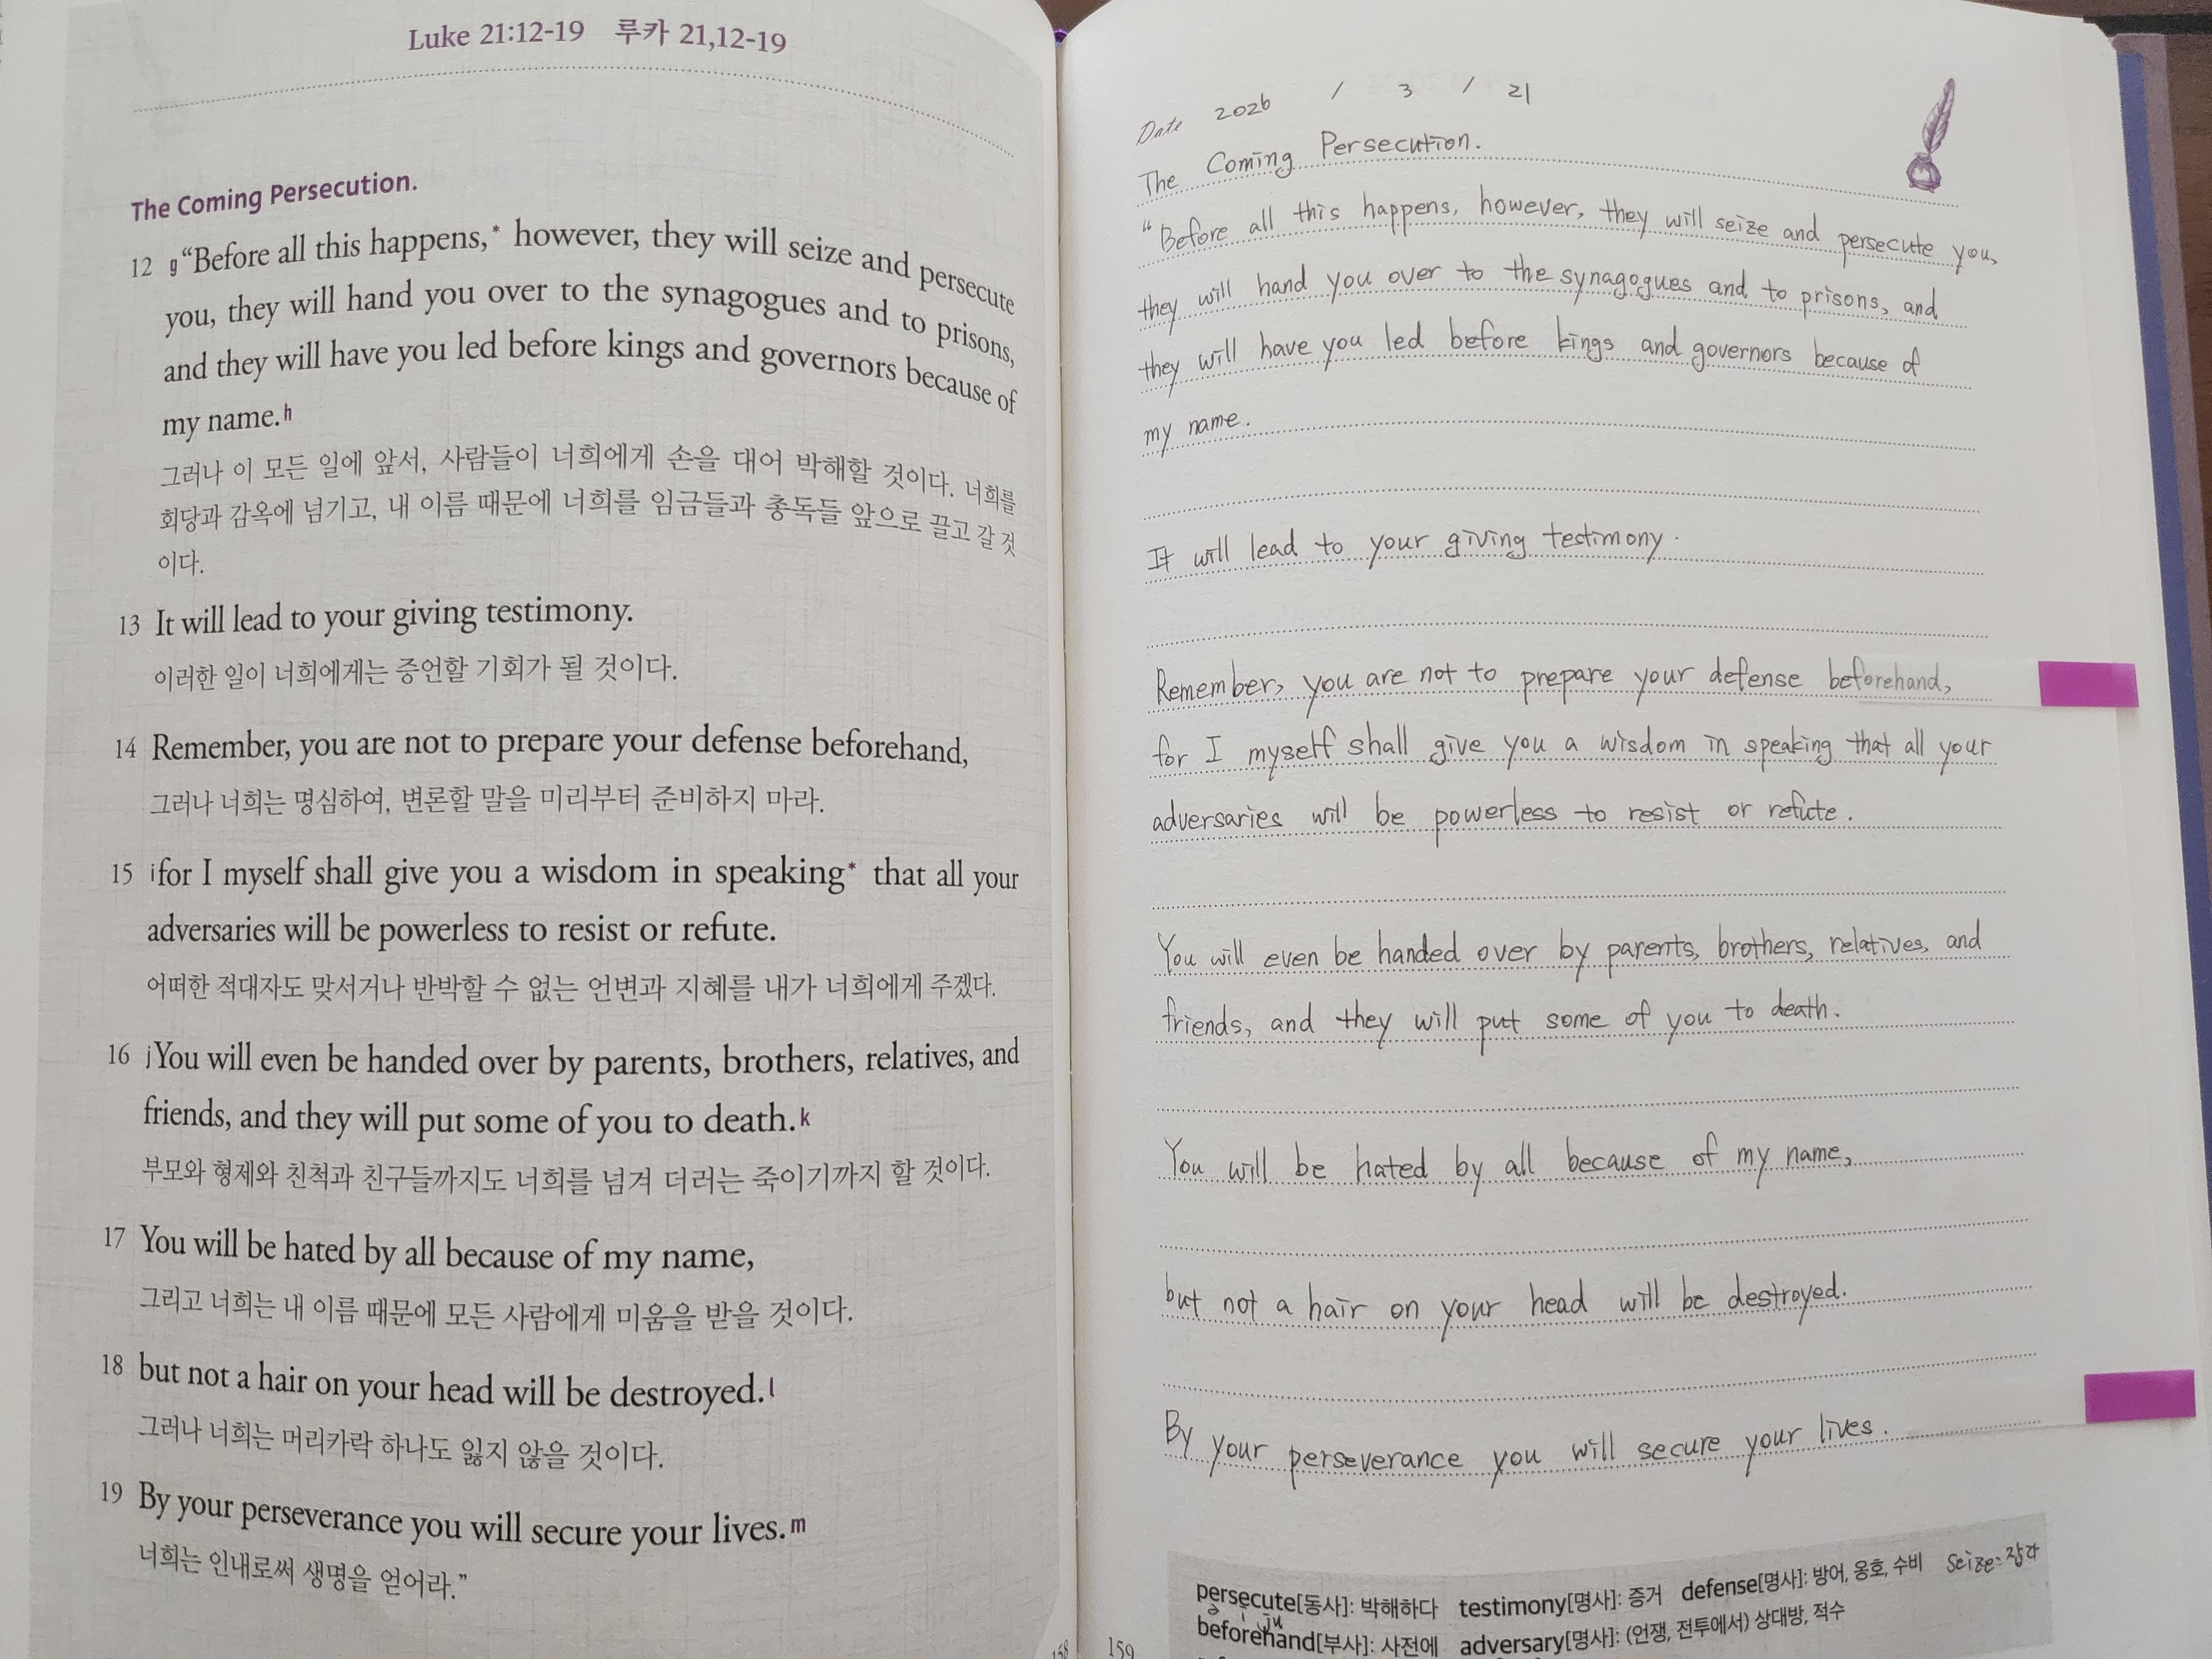 Luke 21:12-19 루카 21,12-19
The Coming Persecution.
12 g“Before all this happens,* however, they will seize and persecute
you, they will hand you over to the synagogues and to prisons,
and they will have you led before kings and governors because of
my name.h
그러나 이 모든 일에 앞서, 사람들이 너희에게 손을 대어 박해할 것이다. 너희를
회당과 감옥에 넘기고, 내 이름 때문에 너희를 임금들과 총독들 앞으로 끌고 갈 것
이다.
13 It will lead to your giving testimony.
이러한 일이 너희에게는 증언할 기회가 될 것이다.
14 Remember, you are not to prepare your defense beforehand,
그러나 너희는 명심하여, 변론할 말을 미리부터 준비하지 마라.
15 ifor I myself shall give you a wisdom in speaking* that all your
adversaries will be powerless to resist or refute.
어떠한 적대자도 맞서거나 반박할 수 없는 언변과 지혜를 내가 너희에게 주겠다.
16 jYou will even be handed over by parents, brothers, relatives, and
friends, and they will put some of you to death.k
부모와 형제와 친척과 친구들까지도 너희를 넘겨 더러는 죽이기까지 할 것이다.
17 You will be hated by all because of my name,
그리고 너희는 내 이름 때문에 모든 사람에게 미움을 받을 것이다.
18 but not a hair on your head will be destroyed.l
그러나 너희는 머리카락 하나도 잃지 않을 것이다.
19 By your perseverance you will secure your lives.m
너희는 인내로써 생명을 얻어라.”
158
Date 2026 / 3 / 21
The Coming Persecution.
“Before all this happens, however, they will seize and persecute you,
they will hand you over to the synagogues and to prisons, and
they will have you led before kings and governors because of
my name.
It will lead to your giving testimony.
Remember, you are not to prepare your defense beforehand,
for I myself shall give you a wisdom in speaking that all your
adversaries will be powerless to resist or refute.
You will even be handed over by parents, brothers, relatives, and
friends, and they will put some of you to death.
You will be hated by all because of my name,
but not a hair on your head will be destroyed.
By your perseverance you will secure your lives.
persecute[동사]: 박해하다 testimony[명사]: 증거 defense[명사]: 방어, 옹호, 수비 Seize: 잡다
ə i ju
beforehand[부사]: 사전에 adversary[명사]: (언쟁, 전투에서) 상대방, 적수
159